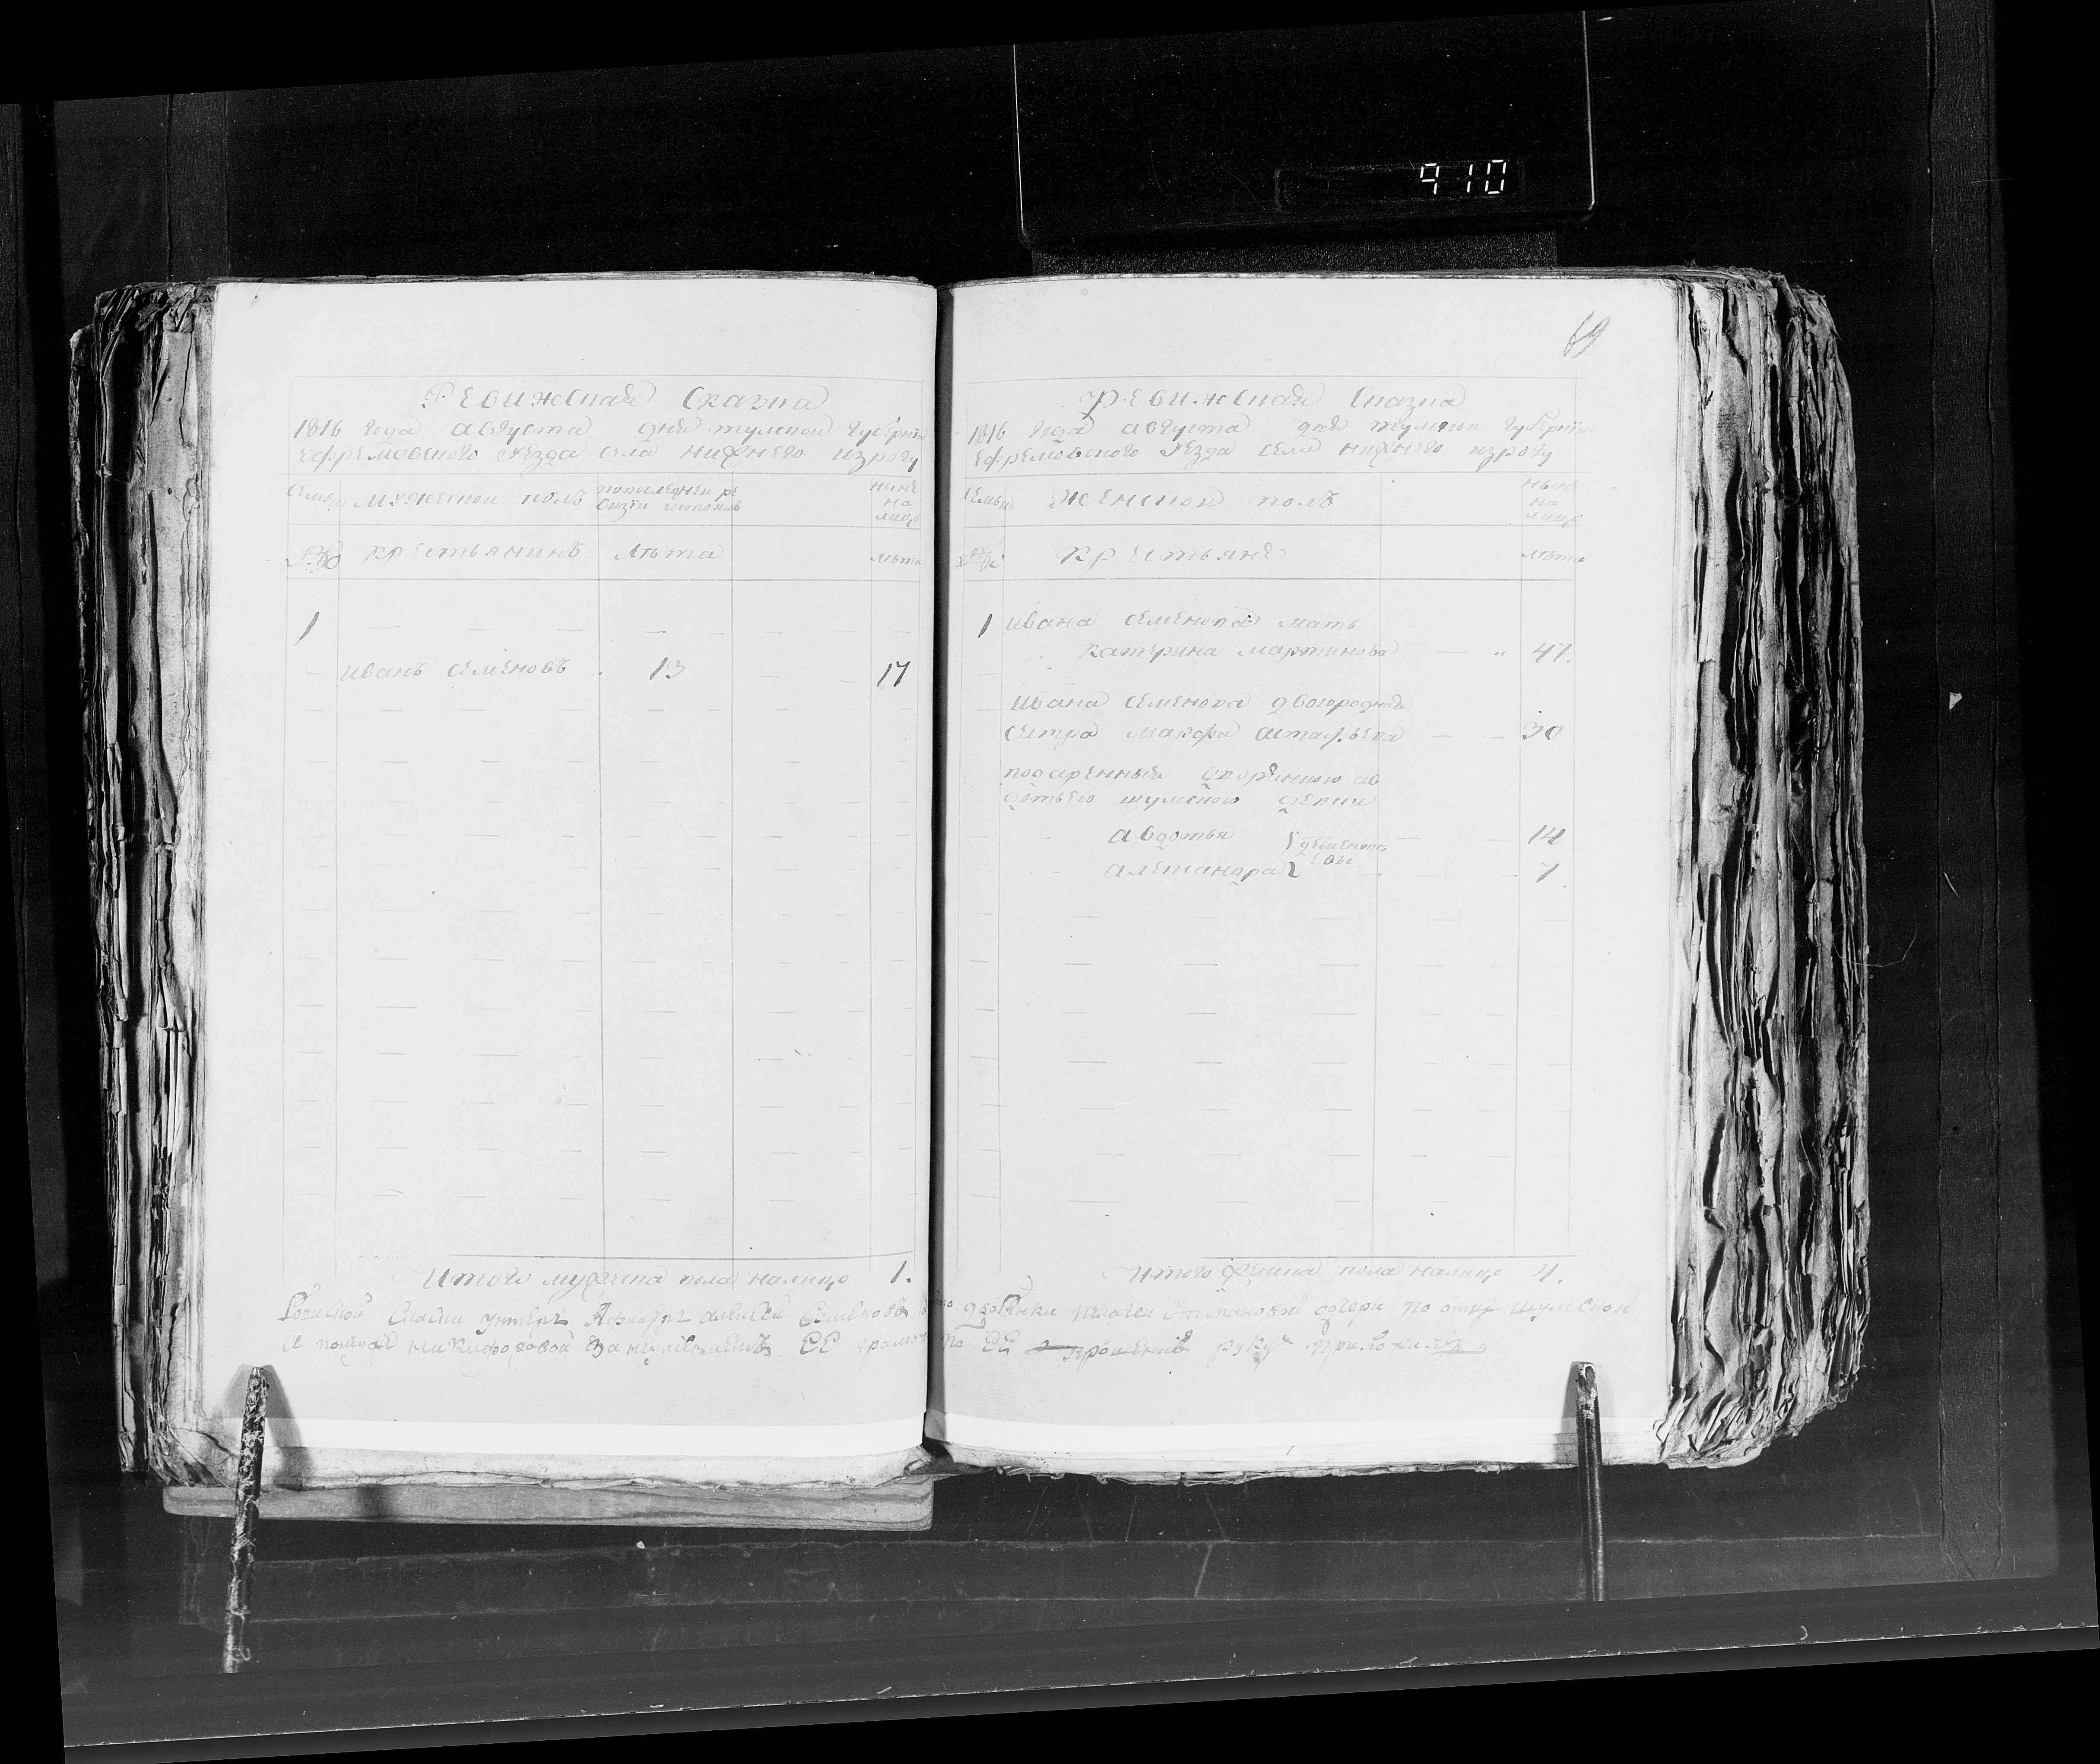 910
69
Ревижская Сказка
1816 года августа дня тульской губернии
Ефремовского уезда села нижнего изрогу
Семьи
мужеской полъ
попоследней ре
визи состояло
ныне
на
лицо
№
крестьянинъ
лѣта
лѣта
1
иванъ семеновъ 13 17
Итого мужеска пола налицо 1.
Ревижская Сказка
1816 года августа дня тульской губернии
Ефремовского уезда села нижнего изрогу
Семьи
женской полъ
ныне
на
лицо
№
крестьяне
лѣта
1 ивана семенова мать
катерина мартинова 47.
ивана семенова двоюродная
сестра макофа астафьева 30
подаренныя дворянкою ав
дотьею шумскою девки
авдотья 14
александра 7
дементь
евы
Итого женска пола налицо 4.
Сей Сказки ундеръ алексей Семеновъ дочери по шумской
и помуже микифоровой за неумениемъ ЕЕ грамоте по ЕЕ прошению руку приложилъ